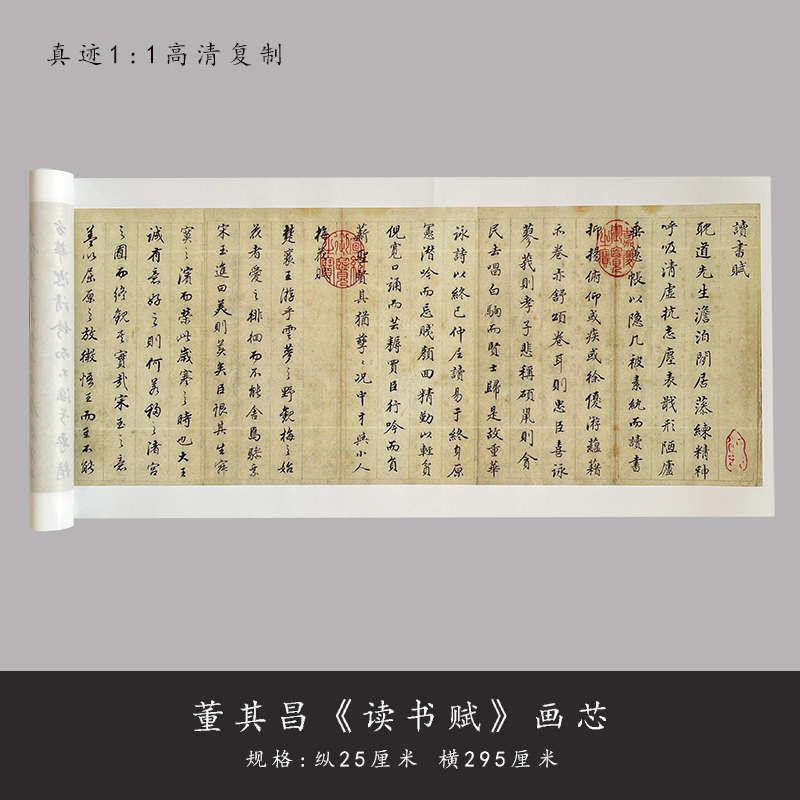 真迹1:1高清复制
讀書賦
耽道先生澹泊閒居藻練精神
呼吸清虛抗志塵表戢形陋廬
垂帳以隐几被素紈而讀書
抑揚俯仰或疾或徐優游蘊藉
亦卷亦舒頌卷耳則忠臣喜詠
蓼莪則孝子悲稱碩鼠則貪
民去唱白駒而賢士歸是故重華
詠詩以終已仲尼讀易于終身原
憲潛吟而忘賤顏回精勤以輕貧
倪寬口誦而芸耨買臣行吟而負
薪聖賢其猶孳〻况中才與小人
梅花賦
楚襄王游乎雲夢之野觀梅之始
花者愛之徘徊而不能舍焉驂乘
宋玉進曰美則美矣臣恨其生寂
寞之濱而榮此歲寒之時也大王
誠有意好之則何若移之渚宮
之囿而終觀其實哉宋玉之意
蓋以屈原之放微悟王而王不能
董其昌《读书赋》画芯
规格:纵25厘米 横295厘米